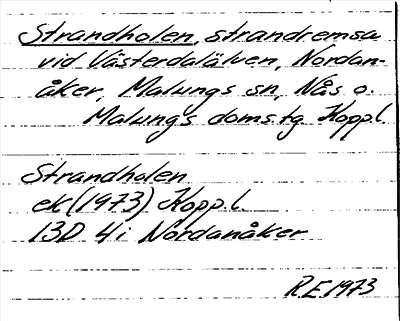 Strandholen, strandremsa
vid Västerdalälven, Nordan-
åker, Malungs sn, Nås o.
Malungs doms.tg Kopp.l.
Strandholen
ek (1973) Kopp.l.
13D 4i Nordanåker
R.E. 1973